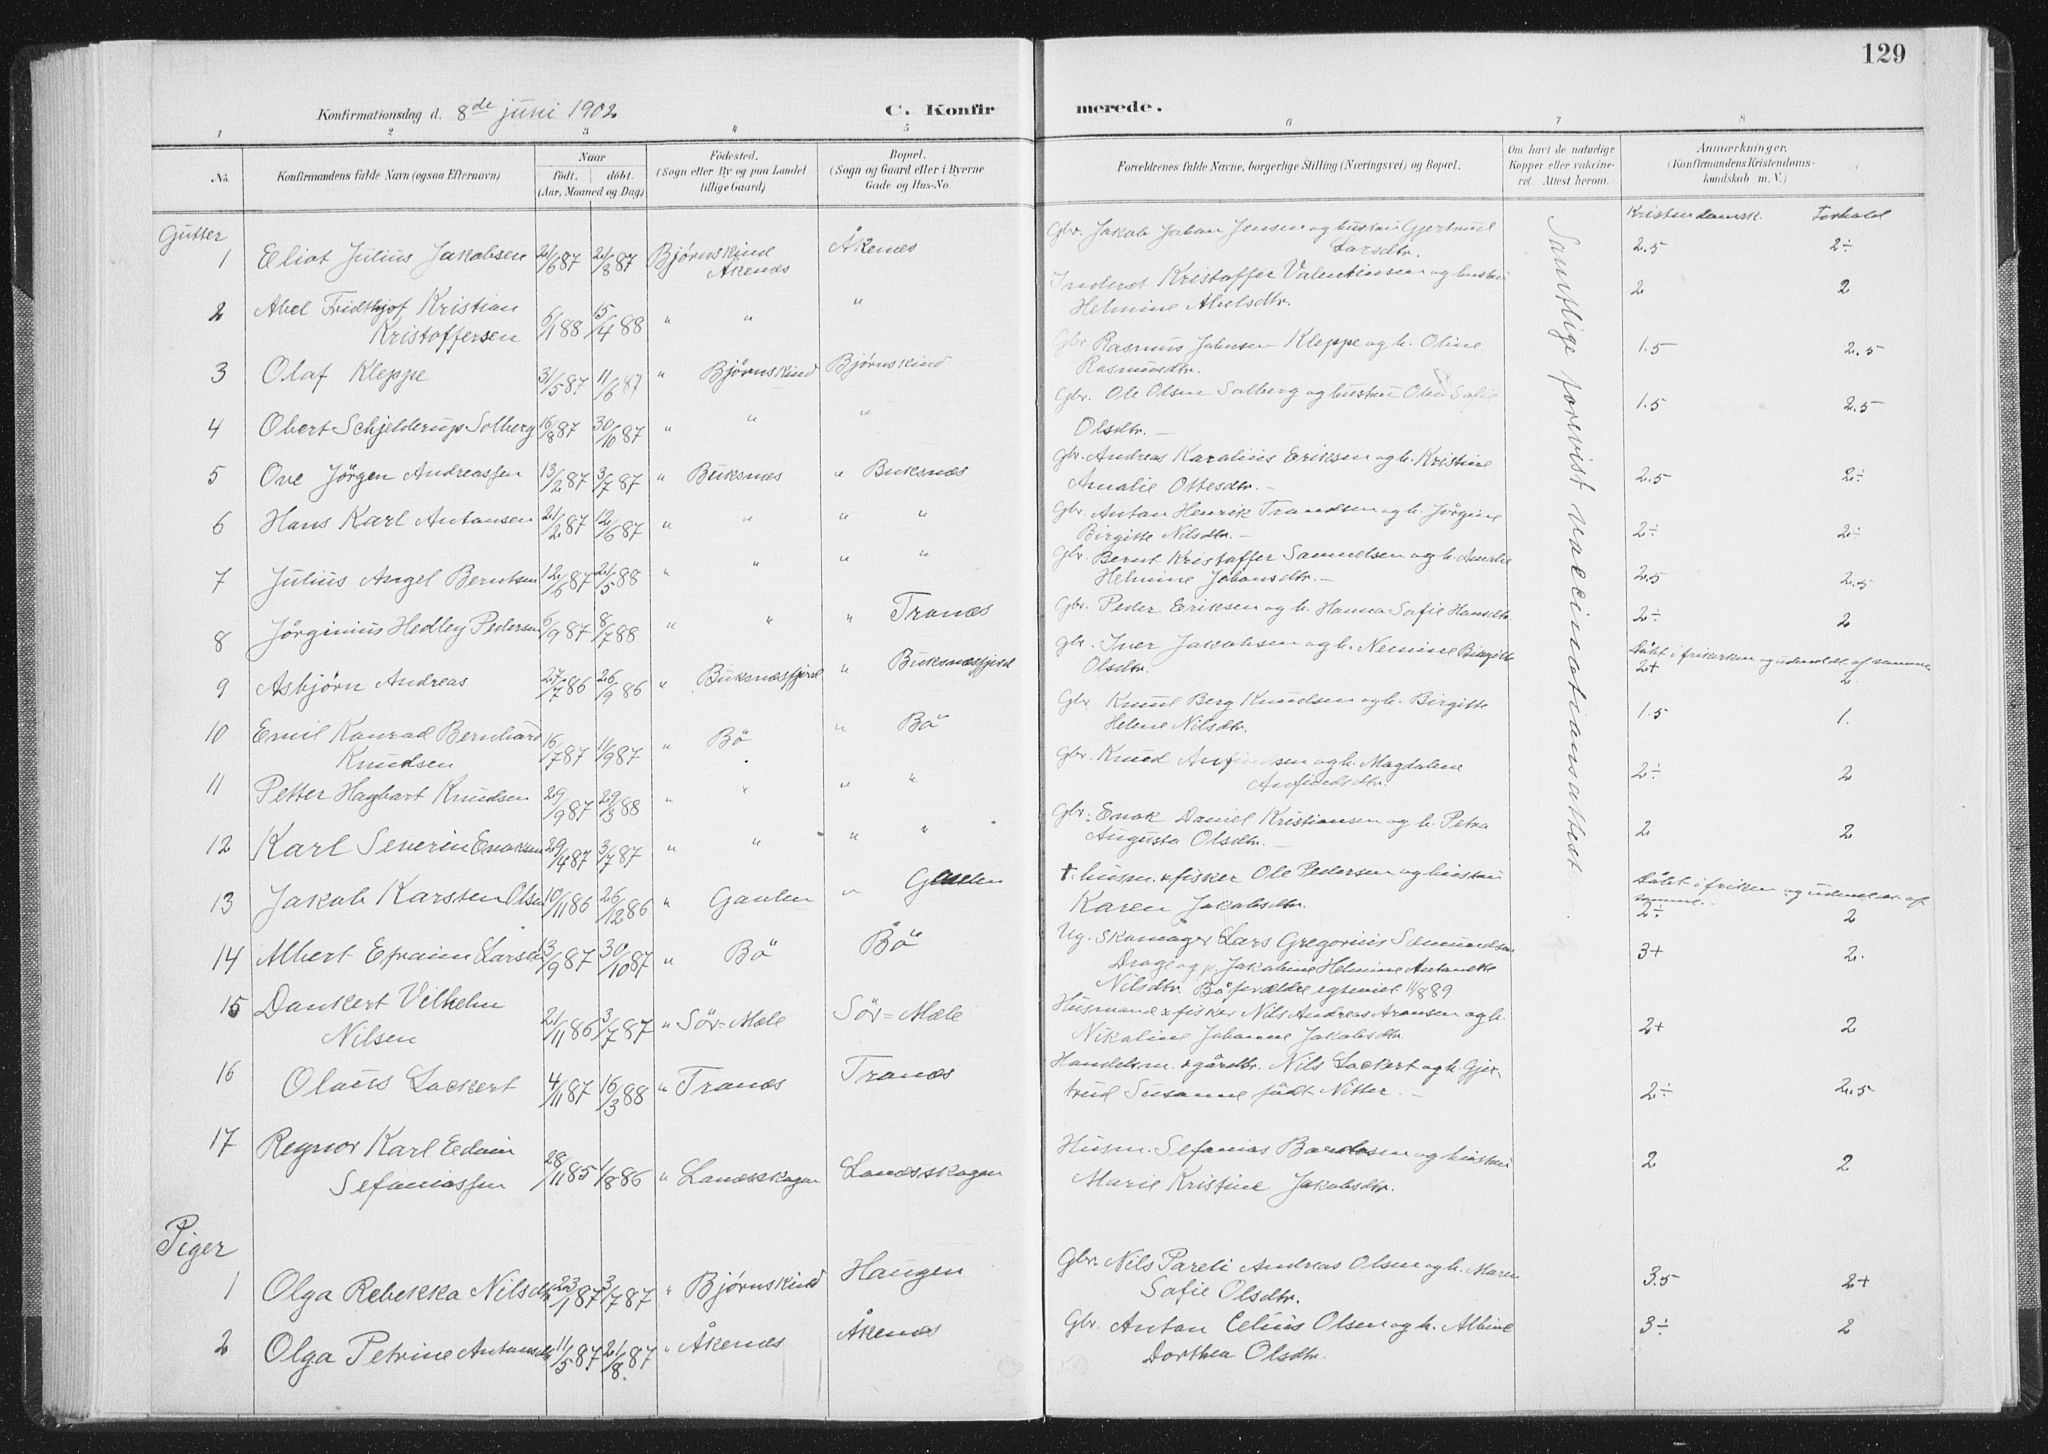 129
Konfirmationsdag d. 8de juni 1902 C. Konfir merede.
1 2 3 4 5 6 7 8
No. Konfirmandens fulde Navn (ogsaa Efternavn) Naar født, døbt. (Aar, Maaned og Dag) Fødested. (Sogn eller By og paa Landet tillige Gaard) Bopæl. (Sogn og Gaard eller i Byerne Gade og Hus-No. Forældrenes fulde Navne, borgerlige Stilling (Næringsvei) og Bopæl. Om havt de naturlige Kopper eller vakcineret. Attest herom. Anmærkninger. (Konfirmandens Kristendomskundskab m. V.)
Kristendomsk. Forhold
Samtlige forevist vaccinationsattest.
Gutter
1 Eliot Julius Jakobsen 21/6 87 21/8 87 Bjørnskind Åkenes Åkenes Gbr. Jakob Johan Jensen og hustru Gjertrud
Larsdtr. 2.5 2÷
2 Abel Fridthjof Kristian Inderst Kristoffer Valentinsen og hustru
Kristoffersen 6/1 88 15/4 88 " " " Helmine Abelsdtr. 2 2
3 Olaf Kleppe 31/5 87 11/6 87 " Bjørnskind Bjørnskind Gbr. Rasmus Johnsen Kleppe og h. Oline
Rasmusdtr. 1.5 2.5
4 Obert Schjelderup Solberg 16/8 87 30/10 87 " " " Gbr. Ole Olsen Solberg og hustru Sofie
Olsdtr. — 1.5 2.5
5 Ove Jørgen Andreassen 13/2 87 3/7 87 " Buksnes " Buksnes gbr. Andreas Karolius Eriksen og h. Kristine
Amalie Ottesdtr. — 2.5 2÷
6 Hans Karl Antonsen 21/2 87 12/6 87 " " " " Gbr. Anton Henrik Trondsen og h. Jørgine
Birgitte Nilsdtr. — 2÷ 2÷
7 Julius Angel Berntsen 12/6 87 21/5 88 " " " " Gbr. Bernt Kristoffer Samuelsen og h. Amalie
Helmine Johansdtr. — 2.5 2.5
8 Jørginius Hedley Pedersen 6/9 87 8/7 88 " " " Tranes Gbr. Peder Eriksen og h. Hanna Sofie Hansdtr. 2÷ 2
9 Asbjørn Andreas 27/7 86 26/9 86 " Buksnesfjord " Buksnesfjord gbr. Iver Jakobsen og h. Nemine Birgitte
Olsdtr. Døbt i frikirken og udmeldt af samme
2+ 2
10 Emil Konrad Bernhard Gbr. Knud Berg Knudsen og h. Birgitte
Knudsen 16/7 87 11/9 87 " Bø " Bø Helene Nilsdtr. 1.5 1.
11 Petter Hagbart Knudsen 29/9 87 29/3 88 " " " " gbr. Knud Anfindsen og h. Magdalene
Anfindsdtr. 2÷ 2
12 Karl Severin Enoksen 29/4 87 3/7 87 " " " " gbr. Enok Daniel Kristiansen og h. Petra
Augusta Olsdtr. — 2 2
13 Jakob Karsten Olsen 10/11 86 26/12 86 " Gavlen " Gavlen †. husm. & fisker Ole Pedersen og hustru
Karen Jakobsdtr. Døbt i frikirken og udmeldt af
samme. 2÷ 2
14 Albert Efraim Larsen 13/9 87 30/10 87 " Bø Bø Ug. skomager Lars Gregorius
Jakobine Helmine Antonette
Nilsdtr. Bø 11/8 89 3+ 2.
15 Dankert Vilhelm Husmand & fisker Nils Andreas Aronsen og h.
Nilsen 21/11 86 3/7 87 " Sør=Mæle Sør=Mæle Nikoline Johanne Jakobsdtr. 2+ 2
16 Olaus Lockert 4/11 87 16/3 88 " Tranes Tranes Handelsm. & gårdbr. Nils Lockert og h. Gjer-
trud Susanne født Nitter. — 2÷ 2.5
17 Regnor Karl Edvin Husm. Sefanias og hustru
Sefaniassen 28/11 85 1/8 86 " Lanesskogen Lanesskogen Marie Kristine Jakobsdtr. 2 2
Piger
1 Olga Rebekka Nilsdtr 23/1 87 3/7 87 " Bjørnskind Haugen Gbr. Nils Pareli Andreas Olsen og h. Maren
Sofie Olsdtr. 3.5 2+
2 Olga Petrine Antonsdtr 11/5 87 21/8 87 " Åkenes Åkenes Gbr. Anton Celius Olsen og h. Albine
Dorthea Olsdtr. 3÷ 2